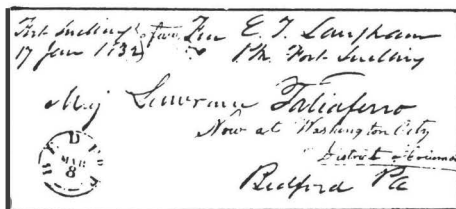 Fort Snelling Free E. T. Langham
17 Jan 1832 P.M. Fort Snelling
Maj Lawrence Taliaferro
Now at Washington City
District of Columbia
Bedford Pa
MAR
8